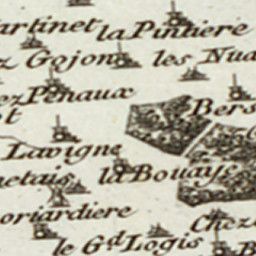 artinet la Pintiere
Gojon les Nua
ez Penaux
Bers
ot
Lavigne
netais la Bouaye
oriardiere
Chez
le Gd Logis